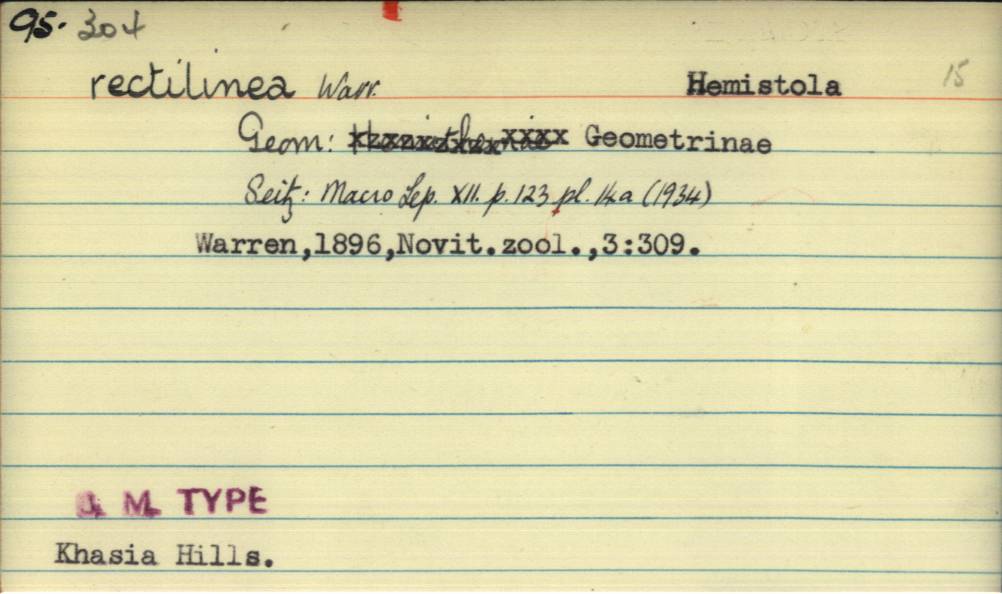 95. 304
rectilinea Warr. Hemistola 15
Geom: Geometrinae
Seitz: Macro Lep. XII. p. 123 pl. 14a (1934)
Warren,1896,Novit.zool.,3:309.
B. M. TYPE
Khasia Hills.